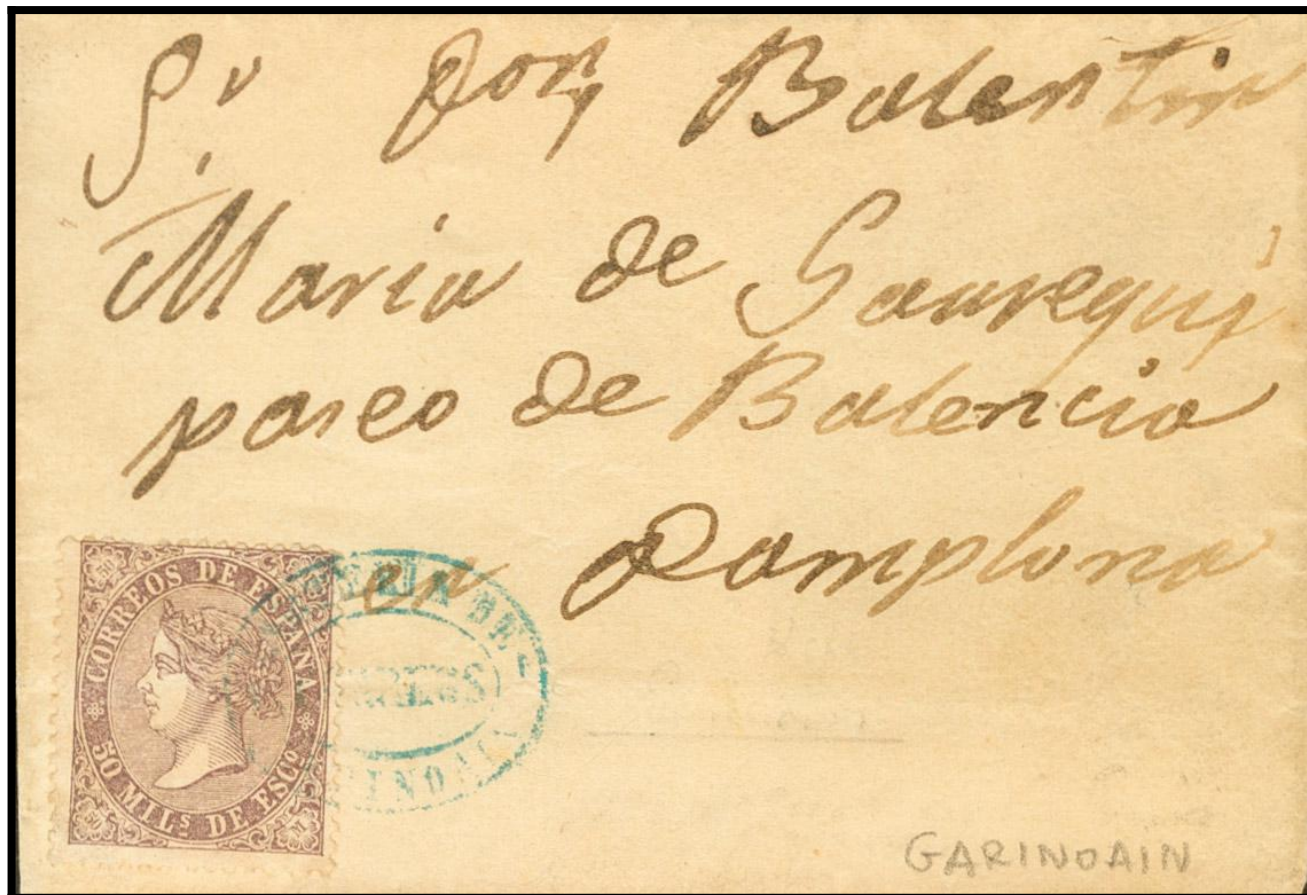 Sr Don Balentin
Maria de Gaureguj
paseo de Balencia
en Pamplona
CORREOS DE ESPAÑA
50 MILS DE ESCO
GARINOAIN